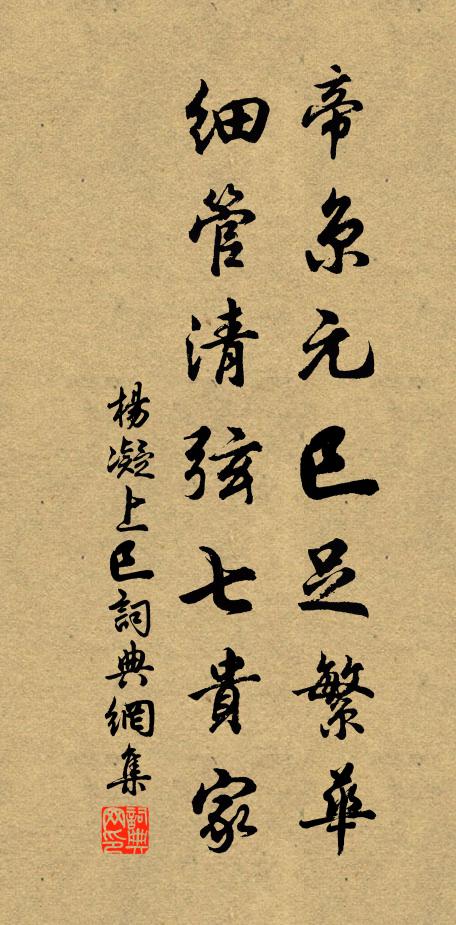 帝京元巳足繁華
細管清弦七貴家
楊凝上巳詞典網集
詞典网印